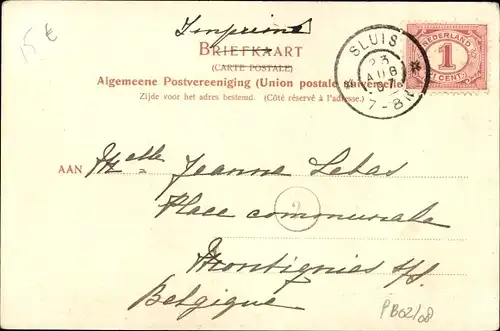 15 €
Imprimé
BRIEFKAART
(CARTE POSTALE)
Algemeene Postvereeniging (Union postale universelle)
Zijde voor het adres bestemd. (Côté réservé à l'adresse.)
SLUIS
23
AUG
07
7-8N
NEDERLAND
1
CENT
AAN Melle Jeanne Lebas
2
Place communale
Montignies s/S.
Belgique
PB02/08